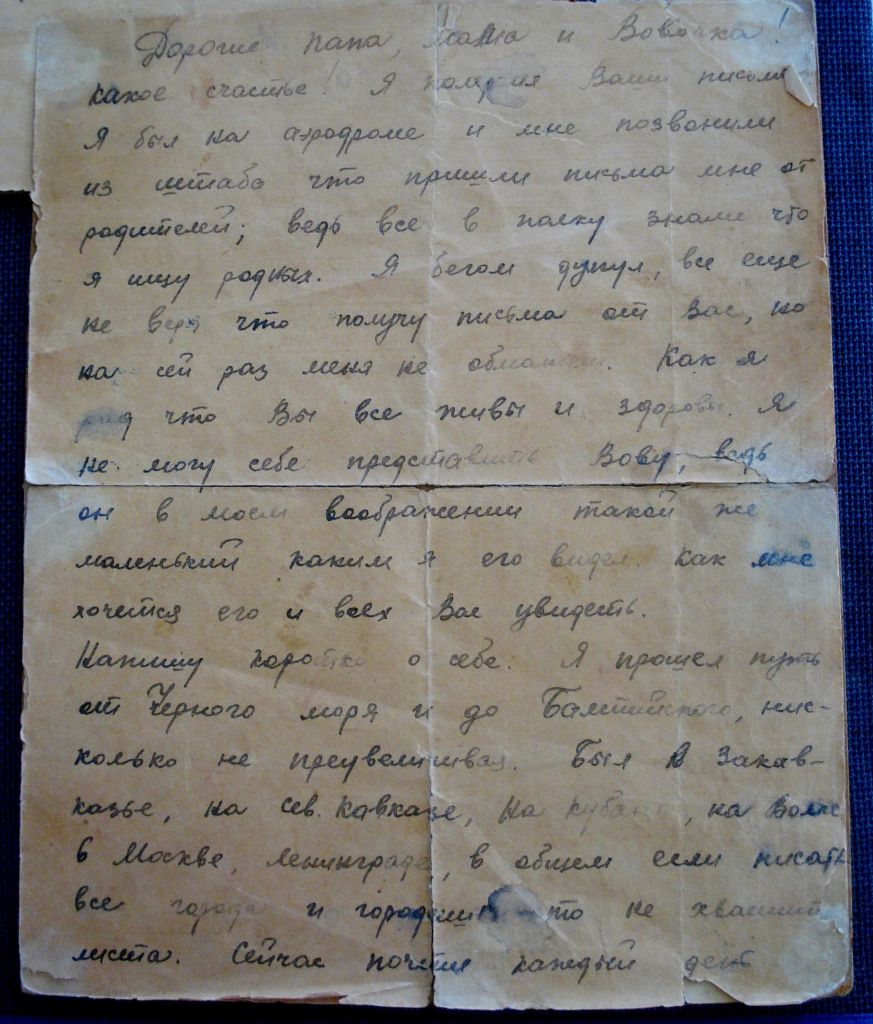 Дорогие папа, мама и Вовочка!
какое счастье! Я получил Ваши письма
Я был на аэродроме и мне позвонили
из штаба что пришли письма мне от
родителей; ведь все в полку знали что
я ищу родных. Я бегом дунул, все еще
не веря что получу письма от Вас, но
на сей раз меня не обманули. Как я
рад что Вы все живы и здоровы. Я
не могу себе представить Вову, ведь
он в моем воображении такой же
маленький каким я его видел. Как мне
хочется его и всех Вас увидеть.
Напишу коротко о себе. Я прошел путь
от Черного моря и до Балтийского, нис-
колько не преувеличивая. Был в Закав-
казье, на Сев. Кавказе, на Кубани, на Волге
в Москве, Ленинграде, в общем если писать
все города и городишки то не хватит
листа. Сейчас почти каждый день